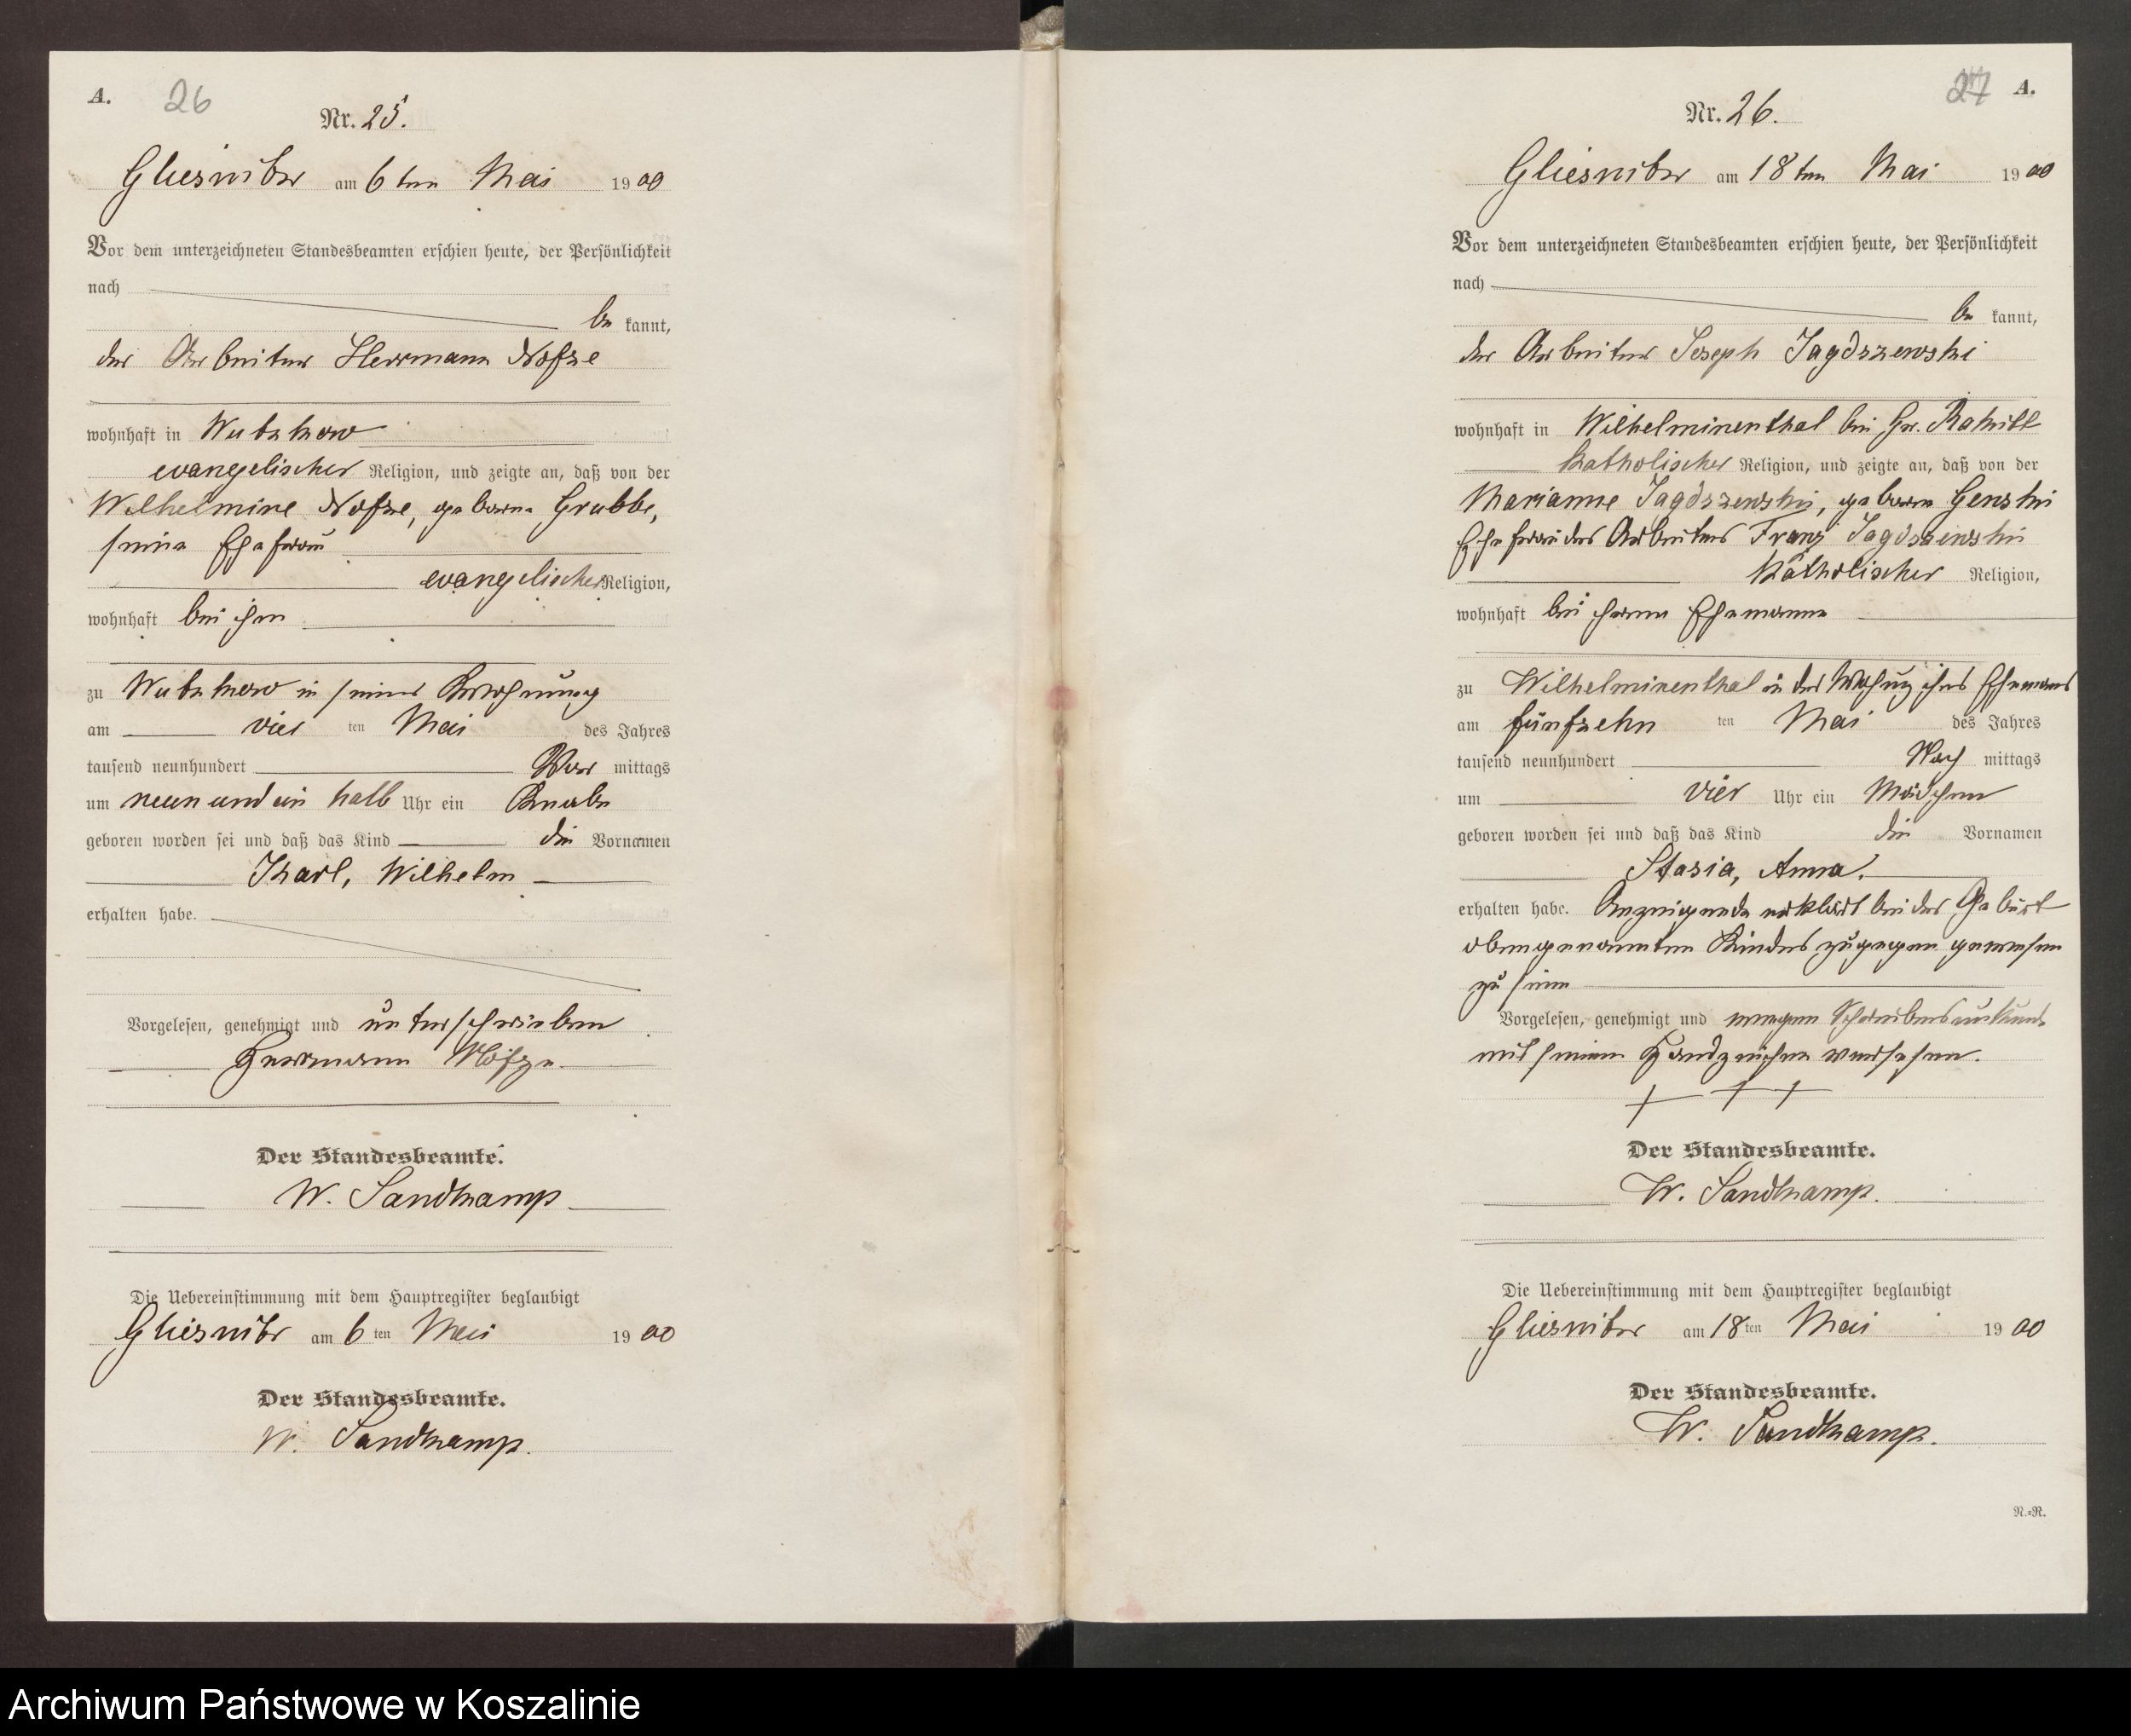 A. 26
Nr. 25.
Gliesnitz am 6ten Mai 1900
Vor dem unterzeichneten Standesbeamten erschien heute, der Persönlichkeit
nach
be kannt,
der Arbeiter Herrmann Nofze
wohnhaft in Wutzkow
evangelischer Religion, und zeigte an, daß von der
Wilhelmine Nofze, geborne Grubbe,
seine Ehefrau
evangelischer Religion,
wohnhaft bei ihm
zu Wutzkow in seiner Bewohnung
am vier ten Mai des Jahres
tausend neunhundert Vor mittags
um neun und ein halb Uhr ein Knabe
geboren worden sei und daß das Kind die Vornamen
Karl, Wilhelm
erhalten habe.
Vorgelesen, genehmigt und unterschrieben
Herrmann
Der Standesbeamte.
W. Sandkamp
Die Uebereinstimmung mit dem Hauptregister beglaubigt
Gliesnitz am 6 ten Mai 1900
Der Standesbeamte.
W. Sandkamp.
27 A.
Nr. 26.
Gliesnitz am 18ten Mai 1900
Vor dem unterzeichneten Standesbeamten erschien heute, der Persönlichkeit
nach
be kannt,
der Arbeiter Joseph Jagdszewski
wohnhaft in Wilhelminenthal bei Gr. Rakitt
katholischer Religion, und zeigte an, daß von der
Marianne Jagdszewski, geborne Genski
Ehefrau des Arbeiters Franz Jagdszewski
katholischer Religion,
wohnhaft bei ihrem Ehemanne
zu Wilhelminenthal in der Wohnung ihres Ehemanns
am fünfzehn ten Mai des Jahres
tausend neunhundert Nach mittags
um vier Uhr ein Mädchen
geboren worden sei und daß das Kind die Vornamen
Stasia, Anna.
erhalten habe. Anzeigende erklärt bei der Geburt
obengenannten Kindes zugegen gewesen
zu sein
Vorgelesen, genehmigt und wegen Schreibensunkunde
mit seinem Handzeichen versehen.
+ + +
Der Standesbeamte.
W. Sandkamp.
Die Uebereinstimmung mit dem Hauptregister beglaubigt
Gliesnitz am 18 ten Mai 1900
Der Standesbeamte.
W. Sandkamp.
N.=R.
Archiwum Państwowe w Koszalinie